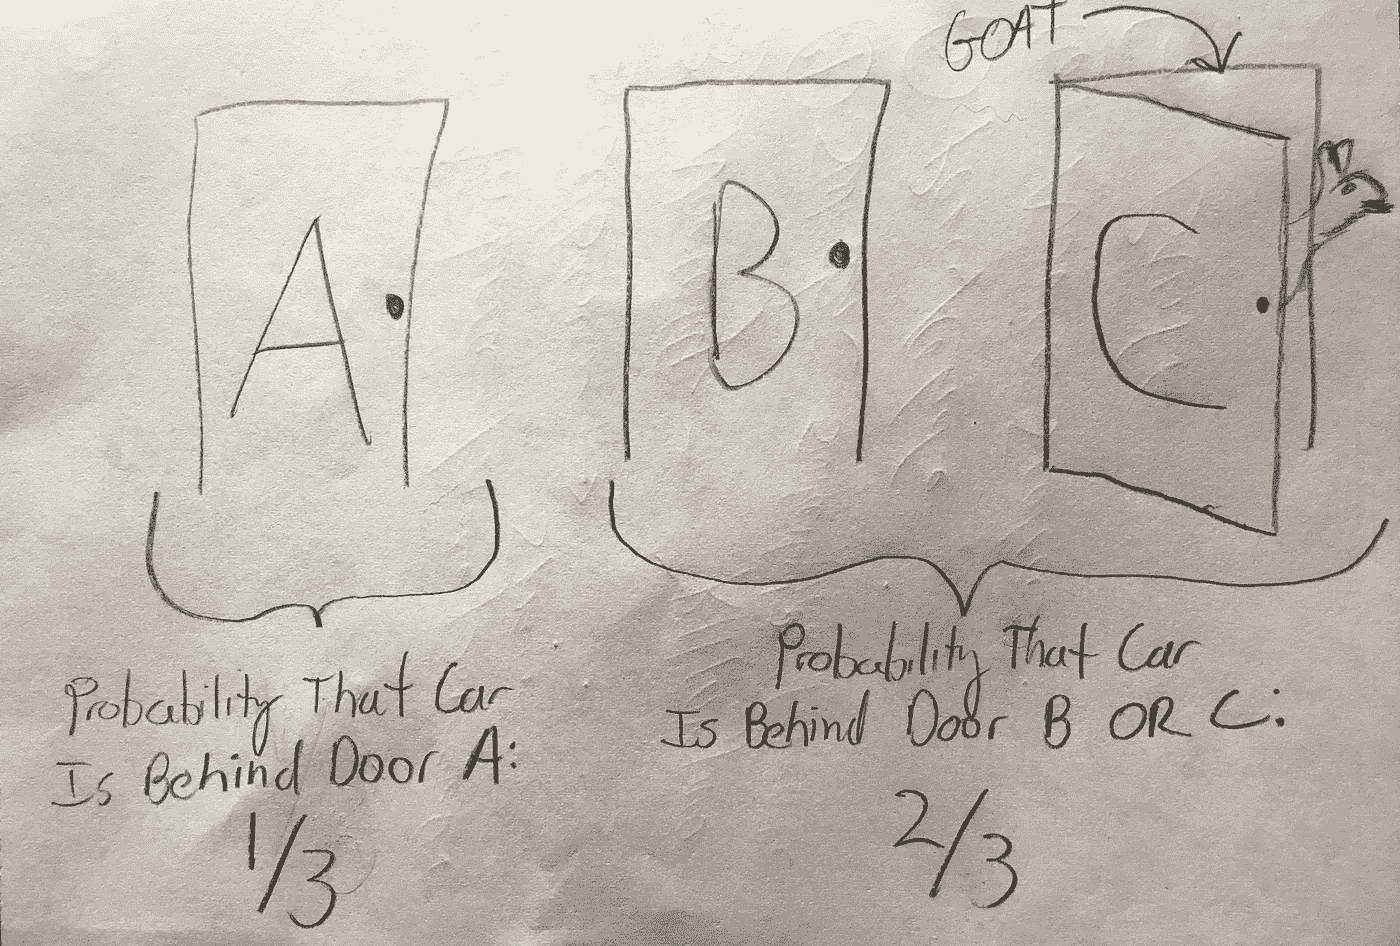 GOAT
A
B
C
Probability That Car
Is Behind Door A:
1/3
Probability That Car
Is Behind Door B OR C:
2/3